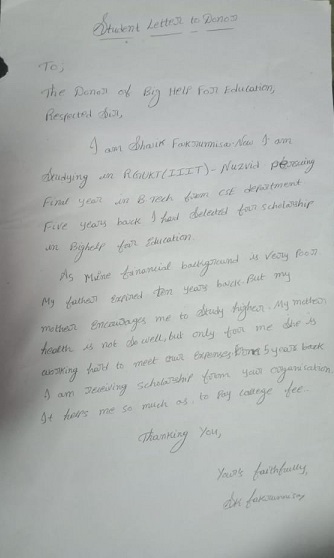 Student Letter to Donor
To,
The Donor of Big Help For Education,
Respected Sir,
I am Shaik Fakrunnisa. Now I am
Studying in RGUKT(IIIT)-Nuzvid persuing
Final year in B-Tech from CSE department
Five years back I had Selected for Scholarship
in Bighelp for Education.
As Mine financial background is Very Poor
My father Expired Ten years back. But my
mother Encourages me to Study higher. My mother
health is not so well, but only for me she is
working hard to meet our Expenses. 5 years back
I am receiving scholarship from your organisation.
It helps me so much as, to Pay college fee.
Thanking You,
Yours faithfully,
Sk fakrunnisa